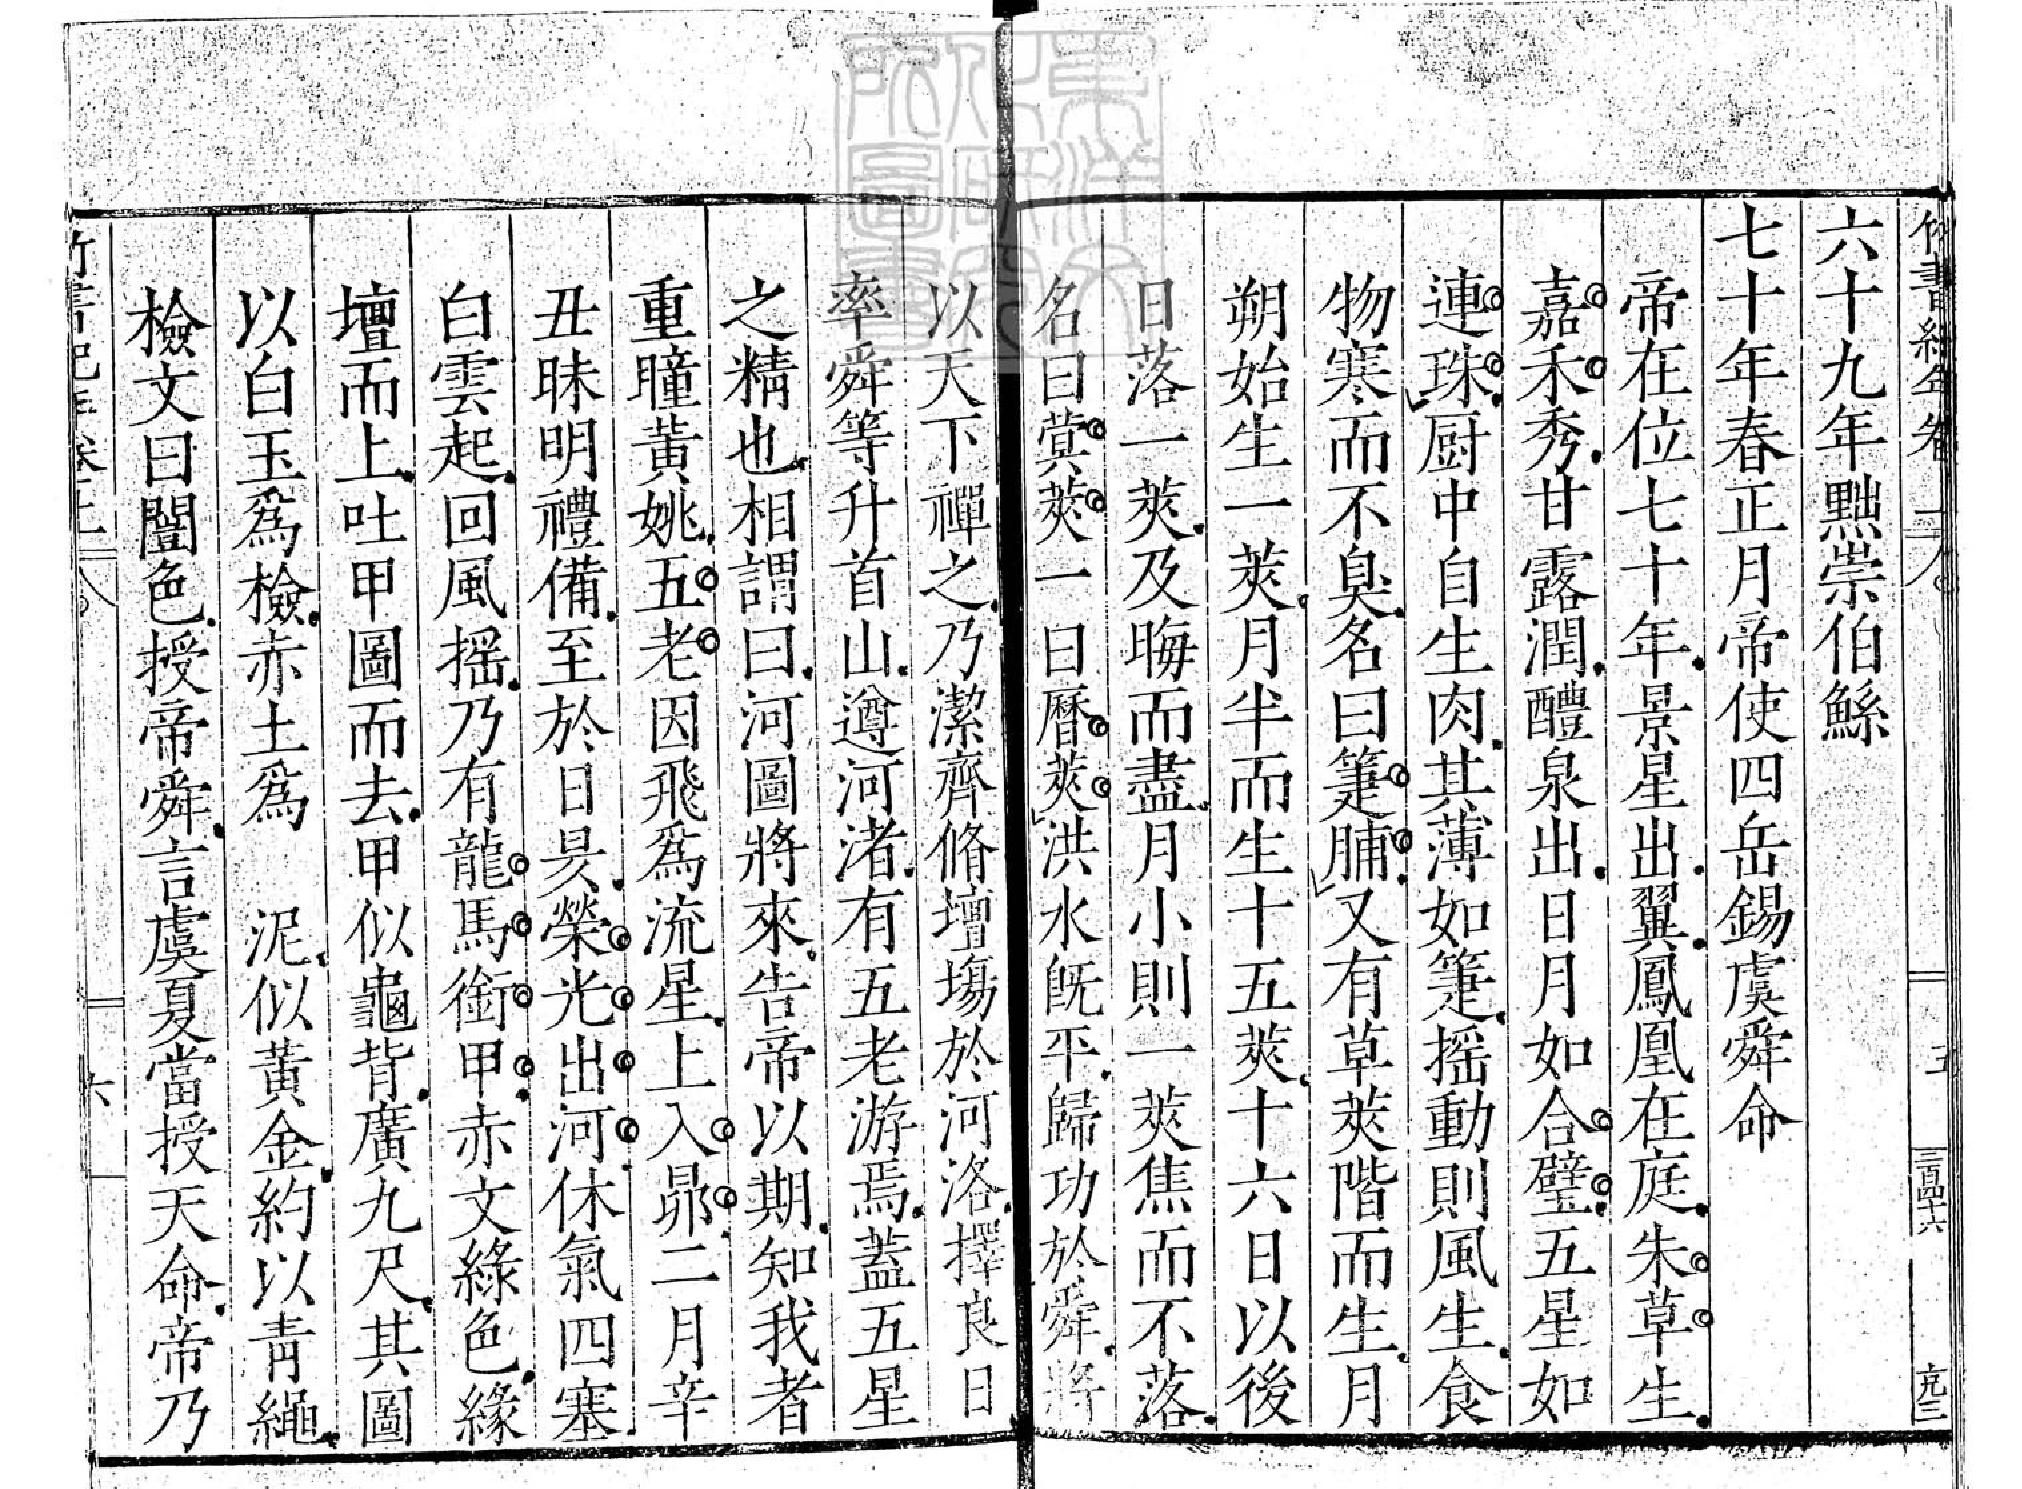 竹書紀年卷上
五
三百四十六
六十九年黜崇伯鯀
七十年春正月帝使四岳錫虞舜命
帝在位七十年景星出翼鳳凰在庭朱草生
嘉禾秀甘露潤醴泉出日月如合璧五星如
連珠厨中自生肉其薄如箑摇動則風生食
物寒而不臭名曰箑脯又有草莢階而生月
朔始生一莢月半而生十五莢十六日以後
日落一莢及晦而盡月小則一莢焦而不落
名曰蓂莢一曰曆莢洪水旣平歸功於舜將
以天下禪之乃潔齊脩壇塲於河洛擇良日
率舜等升首山遵河渚有五老游焉蓋五星
之精也相謂曰河圖將來告帝以期知我者
重瞳黃姚五老因飛爲流星上入昴二月辛
丑昧明禮備至於日昃榮光出河休氣四塞
白雲起回風摇乃有龍馬銜甲赤文綠色緣
壇而上吐甲圖而去甲似龜背廣九尺其圖
以白玉爲檢赤土爲 泥似黃金約以靑繩
檢文曰闓色授帝舜言虞夏當授天命帝乃
竹書紀年卷上
六